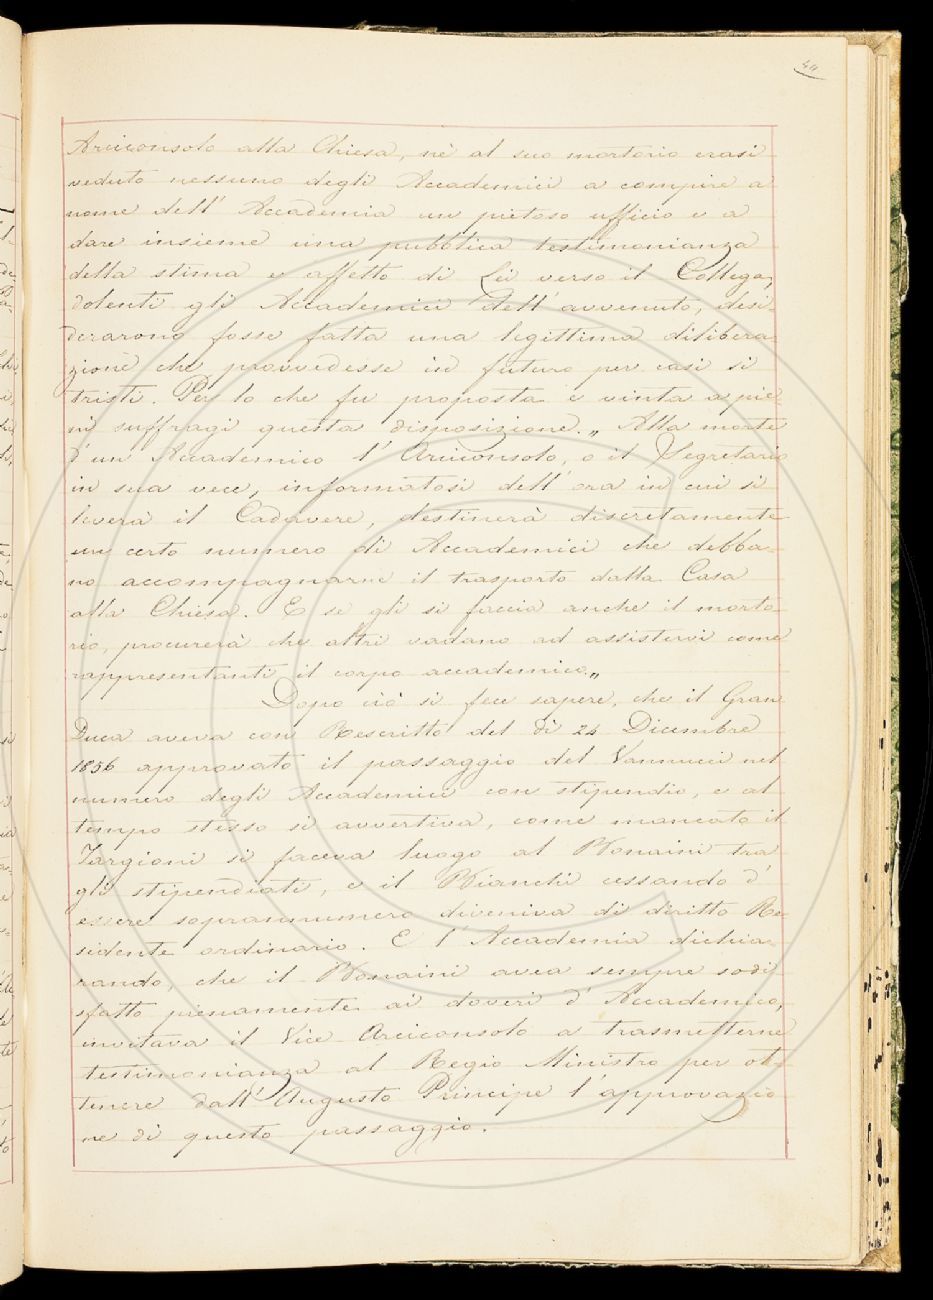 44
Arciconsolo alla Chiesa, nè al suo mortorio erasi
veduto nessuno degli Accademici a compire a
nome dell' Accademia un pietoso ufficio e a
dare insieme una pubblica testimonianza
della stima e affetto di Lei verso il Collega,
dolenti gli Accademici dell' avvenuto, desi-
derarono fosse fatta una legittima dilibera-
zione che provvedesse in futuro per casi sì
tristi. Per lo che fu proposta e vinta a pie-
ni suffragi questa disposizione. „ Alla morte
d'un Accademico l' Arciconsolo, o il Segretario
in sua vece, informatosi dell' ora in cui si
leverà il Cadavere, destinerà discretamente
un certo numero di Accademici che debba-
no accompagnarne il trasporto dalla Casa
alla Chiesa. E se gli si faccia anche il morto-
rio, procurerà che altri vadano ad assistervi come
rappresentanti il corpo accademico. „
Dopo ciò si fece sapere, che il Gran
Duca aveva con Rescritto del dì 24 Dicembre
1856 approvato il passaggio del Vannucci nel
numero degli Accademici con stipendio, e al
tempo stesso si avvertiva, come mancato il
Targioni si faceva luogo al Bonaini tra
gli stipendiati, e il Bianchi cessando d'
essere soprannumero diveniva di diritto Re-
sidente ordinario. E l' Accademia dichia-
rando, che il Bonaini avea sempre sodis-
fatto pienamente ai doveri d' Accademico,
invitava il Vice Arciconsolo a trasmetterne
testimonianza al Regio Ministro per ot-
tenere dall' Augusto Principe l' approvazio-
ne di questo passaggio.